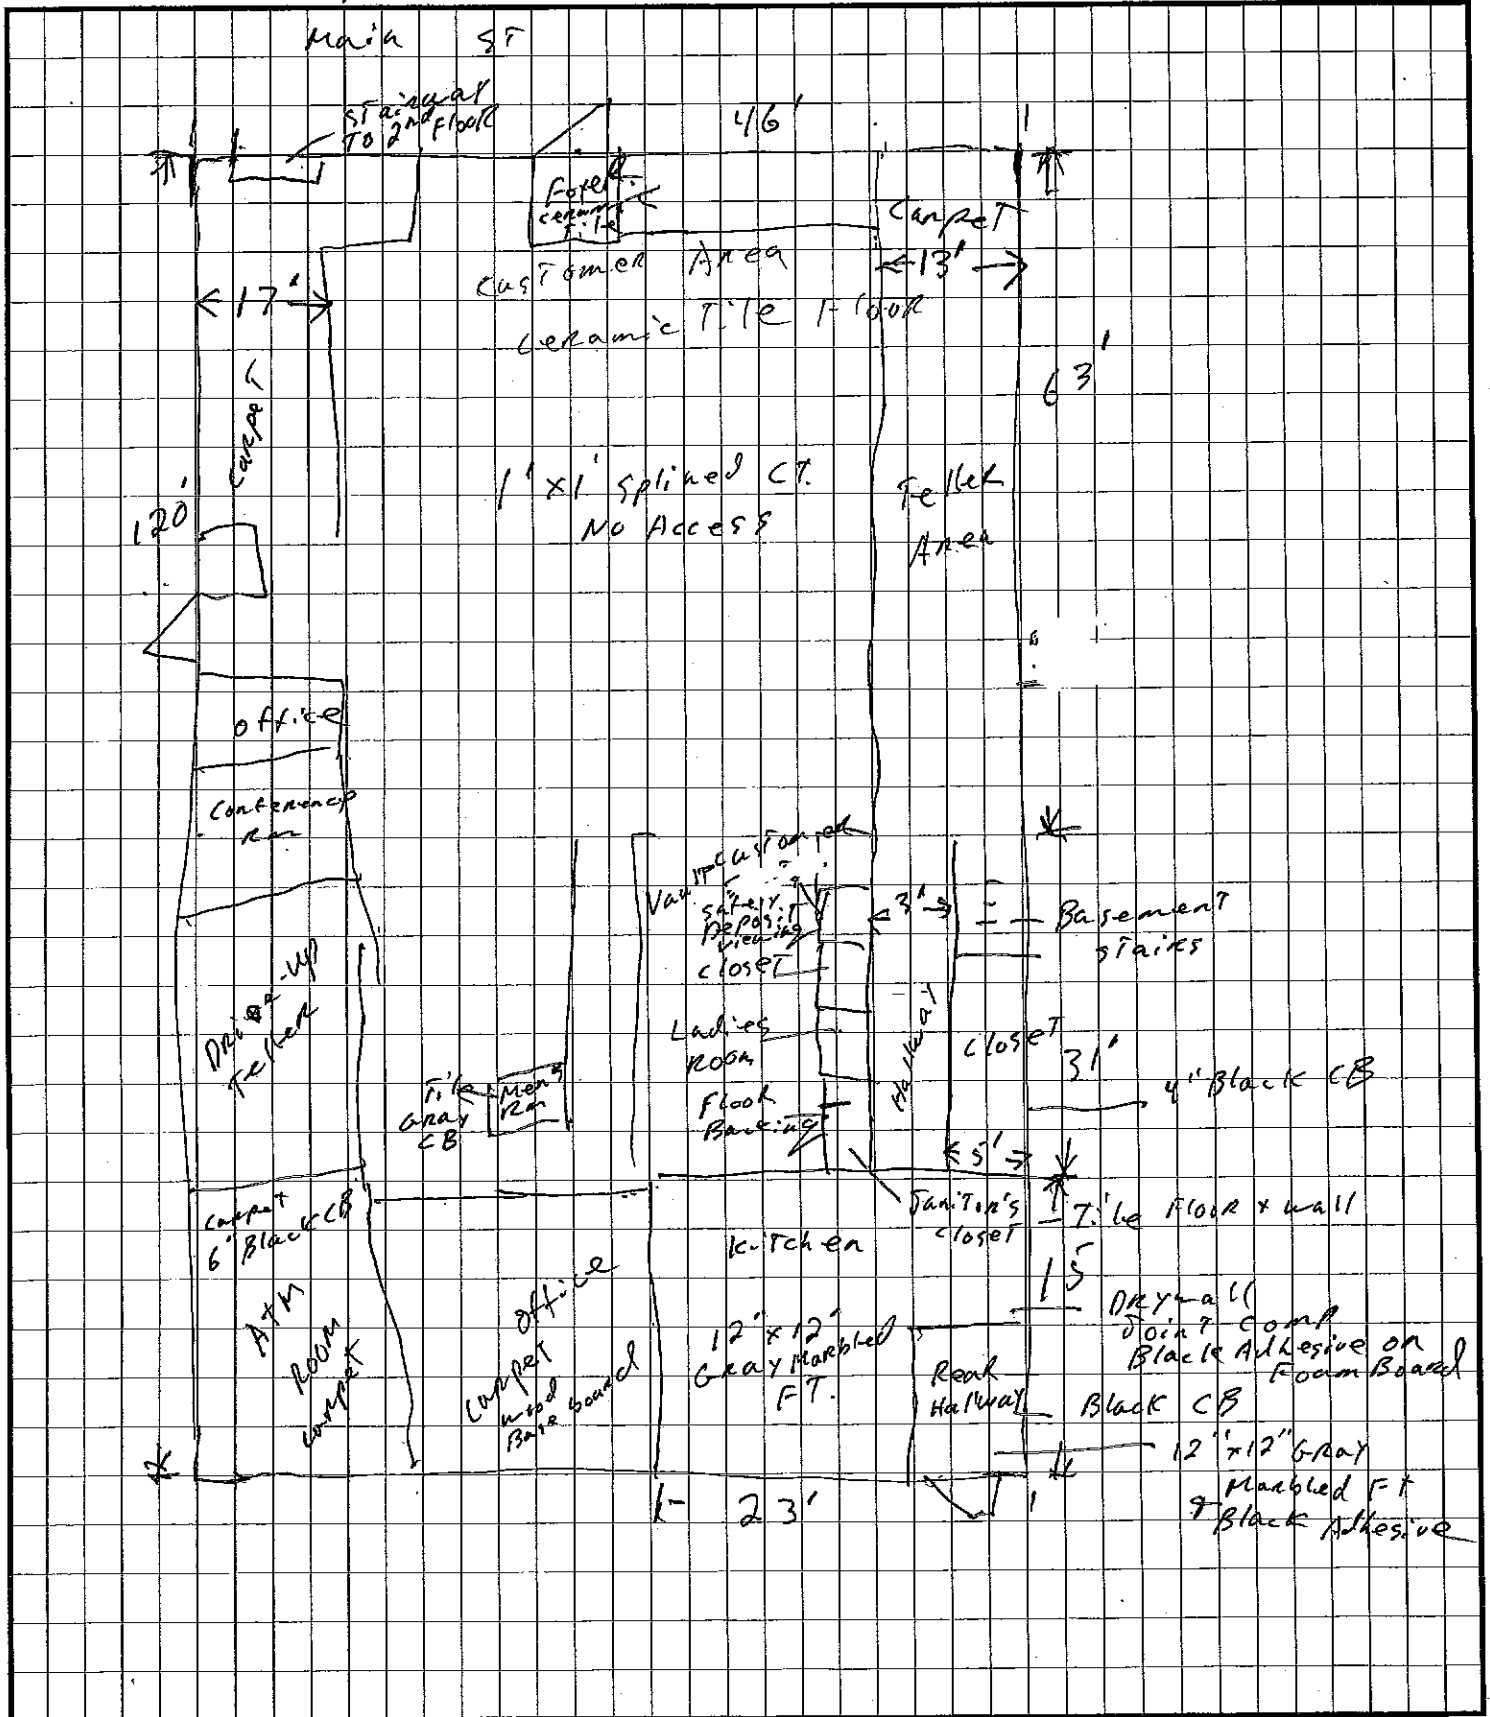 Main ST
Stairway
To 2nd Floor
46'
Foyer
ceramic
Tile
Carpet
13'
Customer Area
Ceramic Tile Floor
17'
Carpet
63'
120'
1'x1' splined CT.
No Access
Teller
Area
office
Conference
Rm
Customer
Vault
Safety
Deposit
Viewing
closet
3'
Basement
stairs
Drive-up
Teller
Ladies
Room
Hallway
closet
31'
4" Black CB
Tile
Gray
CB
Mens
Rm
Floor
Backing
5'
Carpet
6" Black CB
Janitor's
closet
Tile Floor & wall
Kitchen
15
ATM
Room
Carpet
office
Carpet
wood
Base board
12"x12"
Gray Marbled
FT.
Drywall
Joint Comp
Black Adhesive on
Foam Board
Rear
Hallway
Black CB
12"x12" Gray
Marbled FT
& Black Adhesive
23'